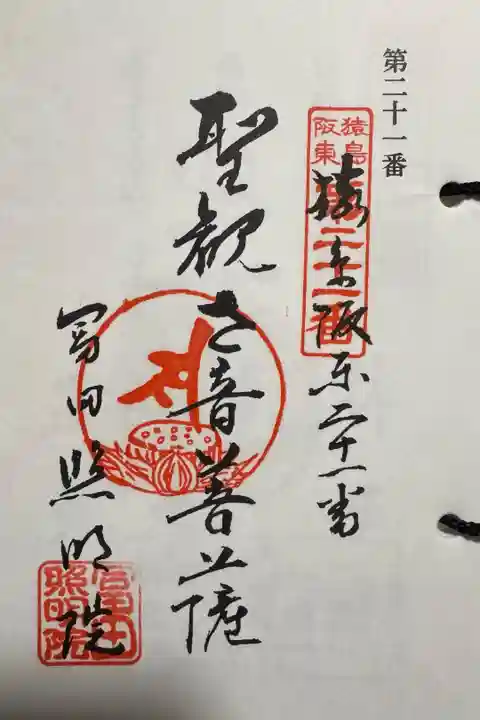 第二十一番
猿島
阪東
第二十一番
猿島阪東二十一番
聖観世音菩薩
富田照明院
富田
照明院